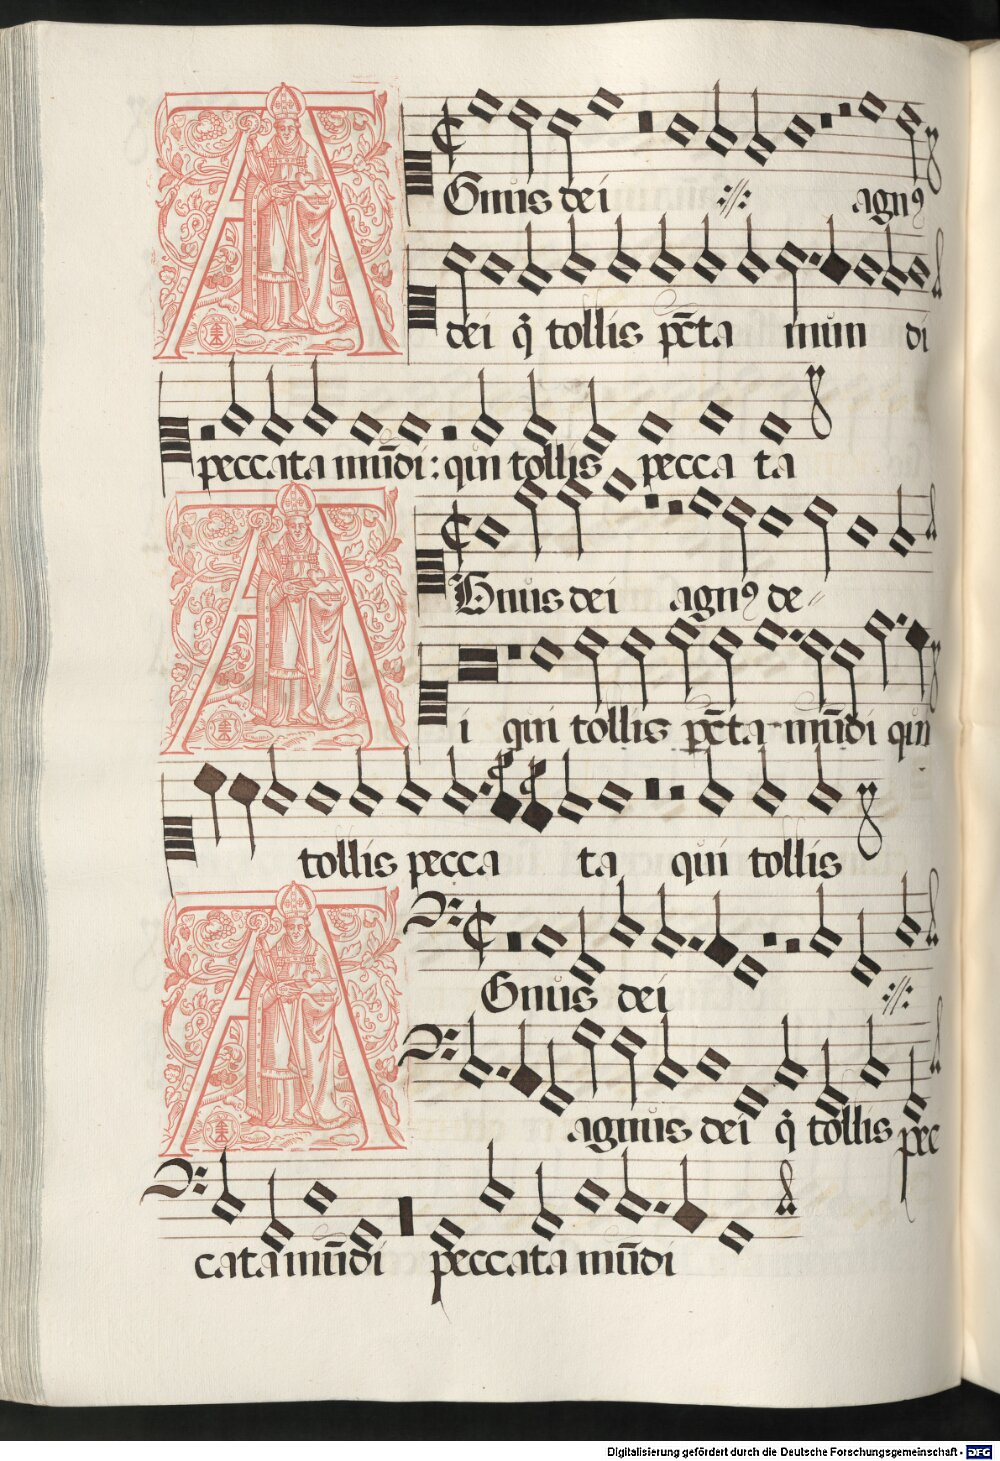 AGnus dei ://: agnꝰ
dei q̃ tollis pc̄ta mun di
peccata mūdi : qui tollis pecca ta
AGnus dei agnꝰ de
i qui tollis pc̄ta mūdi qui
tollis pecca ta qui tollis
AGnus dei ://:
agnus dei q̃ tollis pec
cata mūdi peccata mūdi
Digitalisierung gefördert durch die Deutsche Forschungsgemeinschaft - DFG